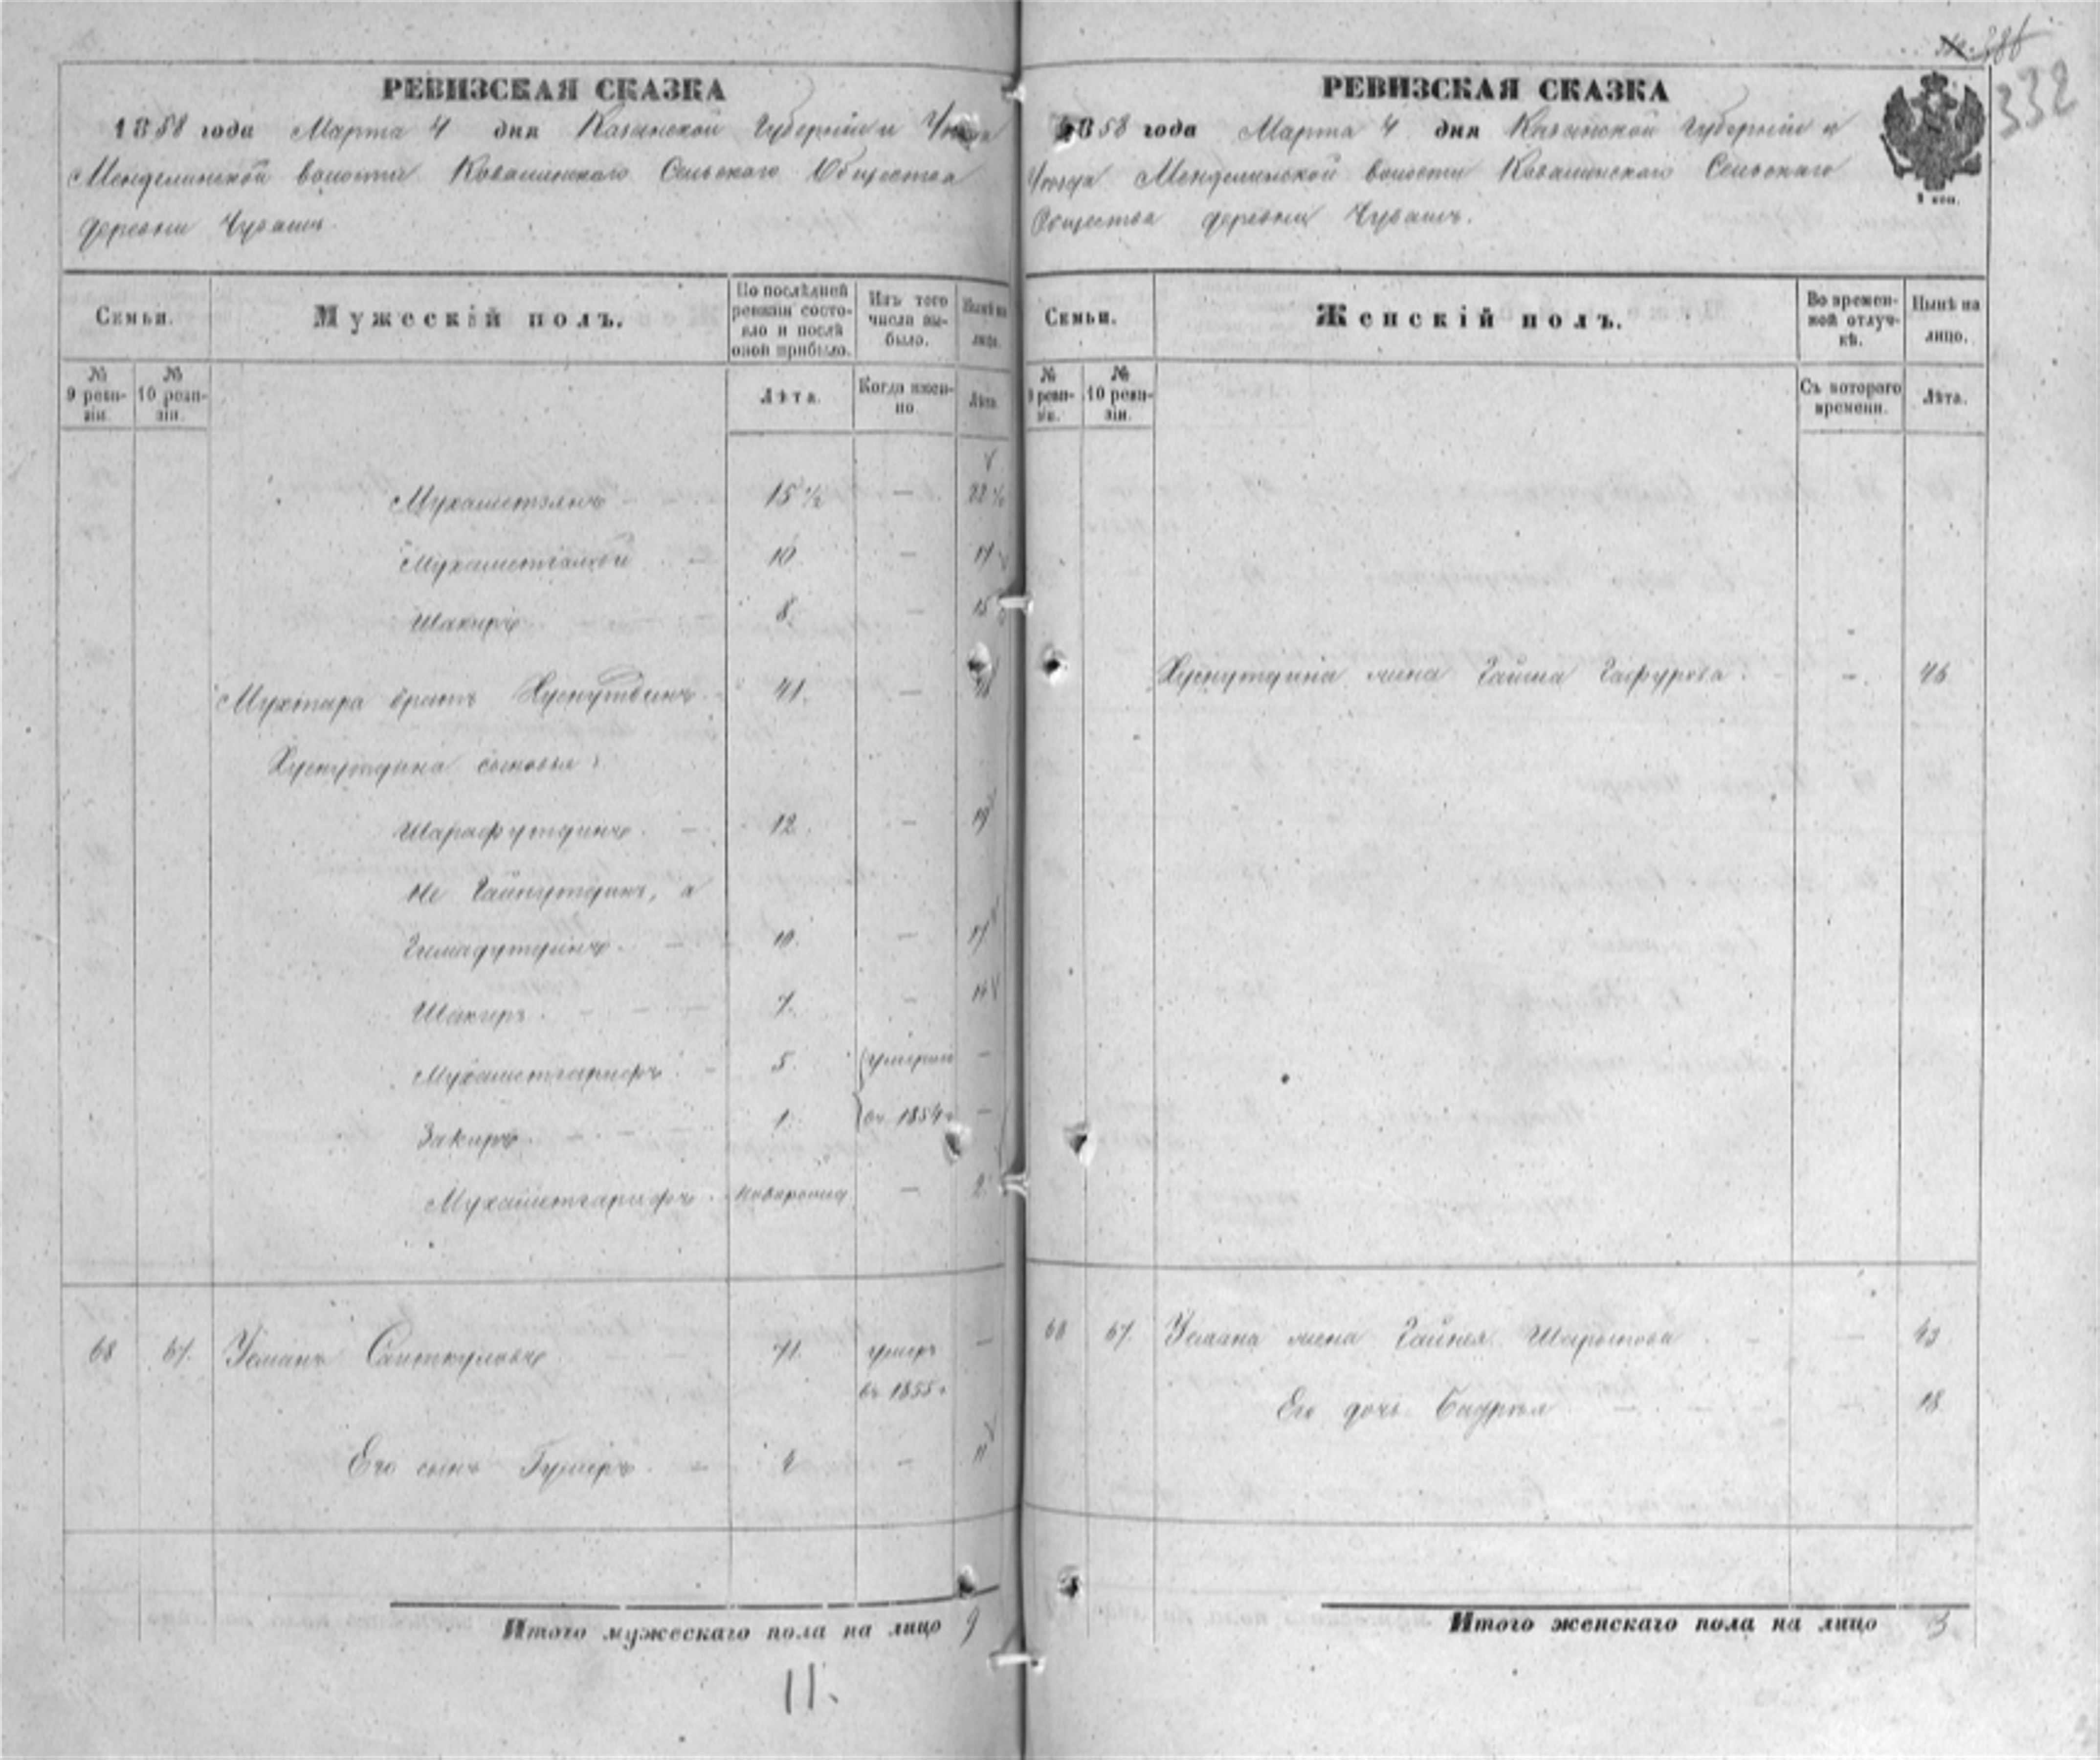 332
РЕВИЗСКАЯ СКАЗКА
1858 года Марта 4 дня Казанской Губерніи и Уѣзда
Менделинской волости Ковалинскаго Сельскаго Общества
деревни Чувашъ
Семьи.
Мужескій полъ.
По послѣдней ревизіи состояло и послѣ оной прибыло.
Изъ того числа выбыло.
Нынѣ на лицо.
№ 9 ревизіи.
№ 10 ревизіи.
Лѣта.
Когда именно
Лѣта.
Мухаметзянъ 15 ½ — 22 ½
Мухаметгалѣй 10 — 17
Шакиръ 8 — 15
Мухтара братъ Хуснутдинъ 41. — 48
Хуснутдина сыновья:
Шарафутдинъ 12. — 19
Не Гайнутдинъ, а
Гимадутдинъ 10. — 17
Шакиръ 7. — 14
Мухаметгарифъ 5. умерли —
Закиръ 1. въ 1854 г —
Мухаметгарифъ новорожд — 2
68 67. Усманъ Саиткуловъ 71. умеръ —
въ 1855 г
Его сынъ Гумеръ 4 — 11
Итого мужескаго пола на лицо 9
11.
РЕВИЗСКАЯ СКАЗКА
1858 года Марта 4 дня Казанской Губерніи и
Уѣзда Менделинской волости Ковалинскаго Сельскаго
Общества деревни Чувашъ.
Семьи.
Женскій полъ.
Во временной отлучкѣ.
Нынѣ на лицо.
№ 9 ревизіи.
№ 10 ревизіи.
Съ котораго времени.
Лѣта.
Хуснутдина жена Гайша Гафурова — 46
68 67. Усмана жена Гайния Шарыпова — 43
Его дочь Бадрія — 18
Итого женскаго пола на лицо 3